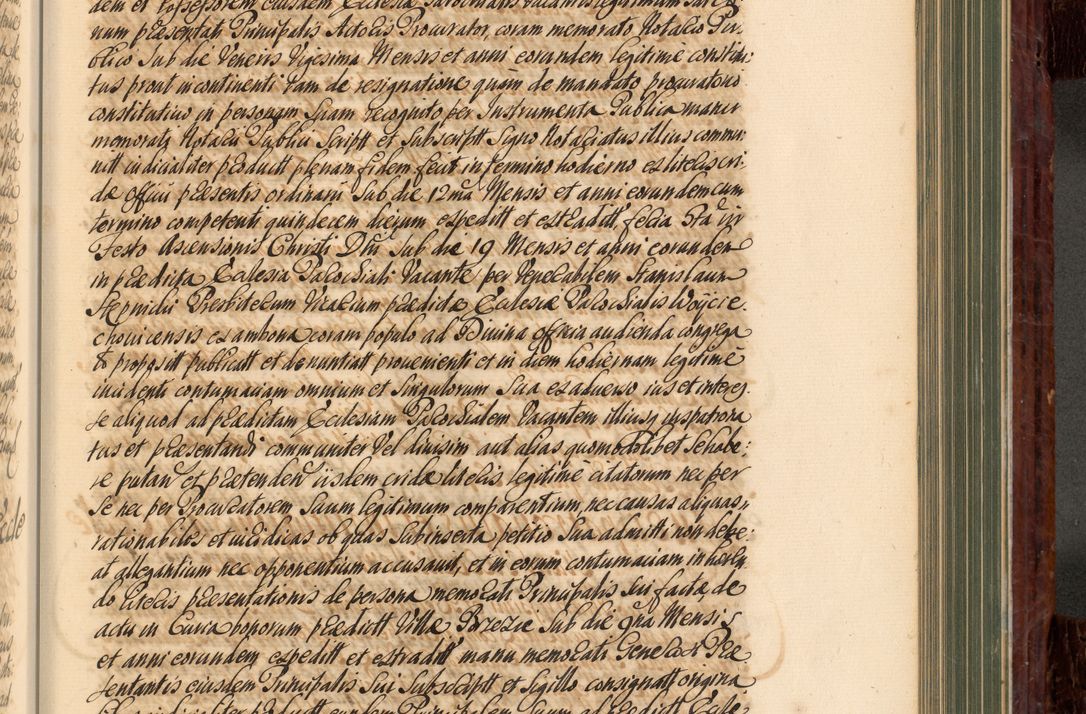 dem et possessorem eiusdem Ecclesiæ Parochialis vacantis legitimum
num præsentati Principalis Actoris Procurator, coram memorato Notario Pu-
blico Sub die Veneris Vigesima Mensis et anni eorundem legitimè constitu
tus prout in continenti tam de resignatione quàm de mandato procuratorio
constitutivo in personam suam recognito per Instrumenta Publica manu
memorati Notarii Publici Script et Subscriptt Signo Notariatus illius commu
nitt iudicialiter produxit plenam fidem fecit in termino hodierno ex literis cri-
dæ officii præsentis ordinarii Sub die 12ma Mensis et anni eorundem cum
termino competenti quindecem dierum expeditt et extraditt, feria
Festo Ascensionis Christi Dni Sub die 19 Mensis et anni eorunden
in prædicta Ecclesia Parochiali Vacante per Venerabilem Stanislaum
Presbiterum Vicarium prædictæ Ecclesiæ Parochialis Woycie-
chovicensis ex ambona coram populo ad Divina officia audienda congrega
to proposit publicatt et denuntiatt provenienti et in diem hodiernam legitimè
incidenti contumaciam omnium et Singulorum Sua ex adverso ius et interes-
se aliquod ad prædictam Ecclesiam Parochialem Vacantem illiusq iuspatrona
tus et præsentandi communiter vel divisim aut alias quomodolibet se habe:
re putan et prætenden iisdem cridæ literis legitimè citatorum nec per
se nec per Procuratorem Suum legitimum comparentium, nec causas aliquas,
rationabiles et iuridicas ob quas Subinserta petitio Sua admitti non debe:
at allegantium nec opponentium accusavit, et in eorum contumaciam inhæren
do literis præsentationis de persona memorati Principalis Sui facta de
actu in Curia bonorum prædictt Villæ Brzezie Sub die 9na Mensis
et anni eorundem expeditt et extraditt manu memorati Generosi Præ
sentantis eiusdem Principalis Sui Subscriptt et Sigillo consignatt origina